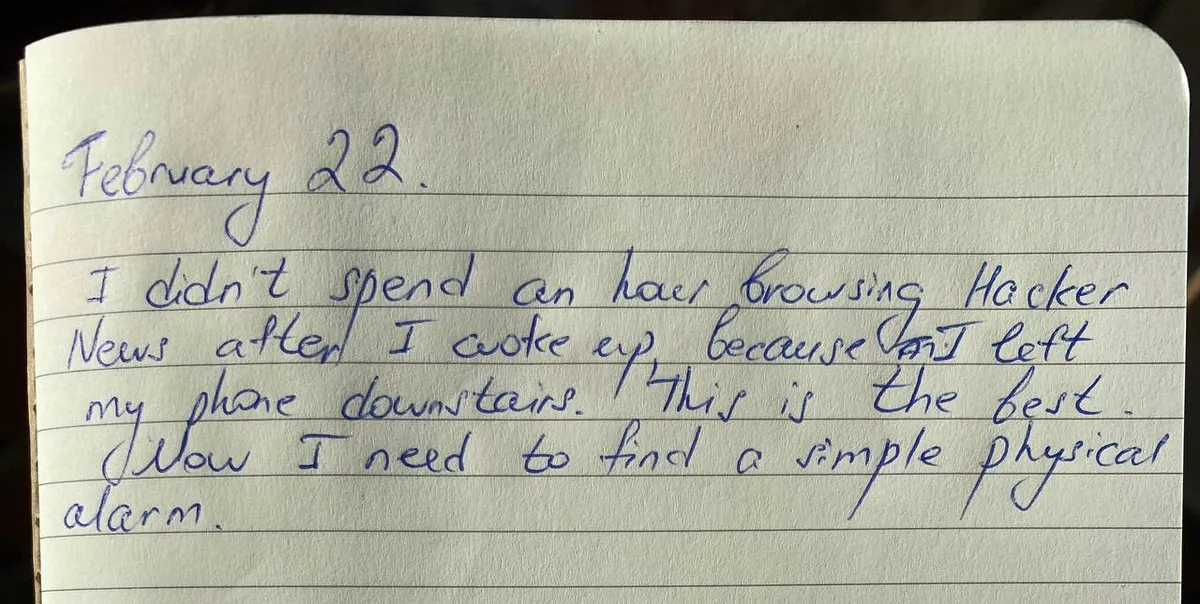 February 22.
I didn't spend an hour browsing Hacker
News after I woke up, because I left
my phone downstairs. This is the best.
Now I need to find a simple physical
alarm.